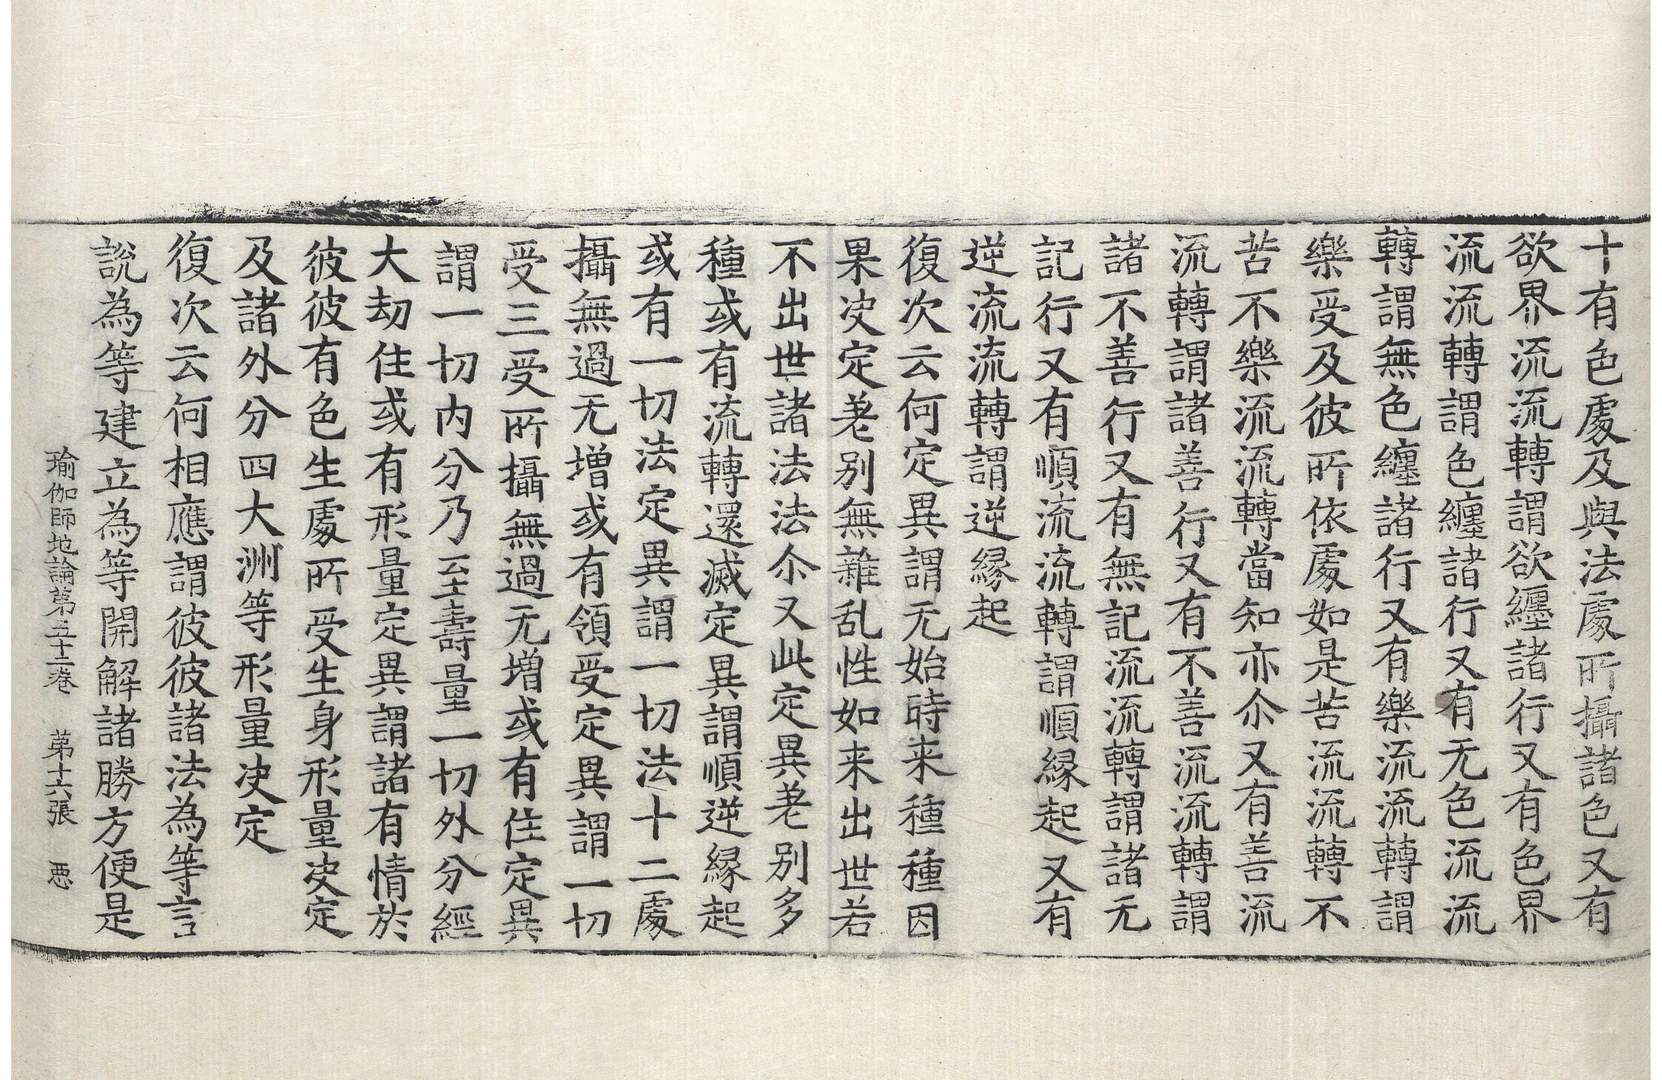 十有色處及與法處所攝諸色又有
欲界流流轉謂欲纏諸行又有色界
流流轉謂色纏諸行又有无色流流
轉謂無色纏諸行又有樂流流轉謂
樂受及彼所依處如是苦流流轉不
苦不樂流流轉當知亦尒又有善流
流轉謂諸善行又有不善流流轉謂
諸不善行又有無記流流轉謂諸无
記行又有順流流轉謂順縁起又有
逆流流轉謂逆縁起
復次云何定異謂无始時来種種因
果决定差別無雜乱性如来出世若
不出世諸法法尒又此定異差別多
種或有流轉還滅定異謂順逆縁起
或有一切法定異謂一切法十二處
攝無過无增或有領受定異謂一切
受三受所攝無過无增或有住定異
謂一切內分乃至壽量一切外分經
大劫住或有形量定異謂諸有情於
彼彼有色生處所受生身形量决定
及諸外分四大洲等形量决定
復次云何相應謂彼彼諸法為等言
說為等建立為等開解諸勝方便是
瑜伽師地論第五十二卷 第十六張 惡